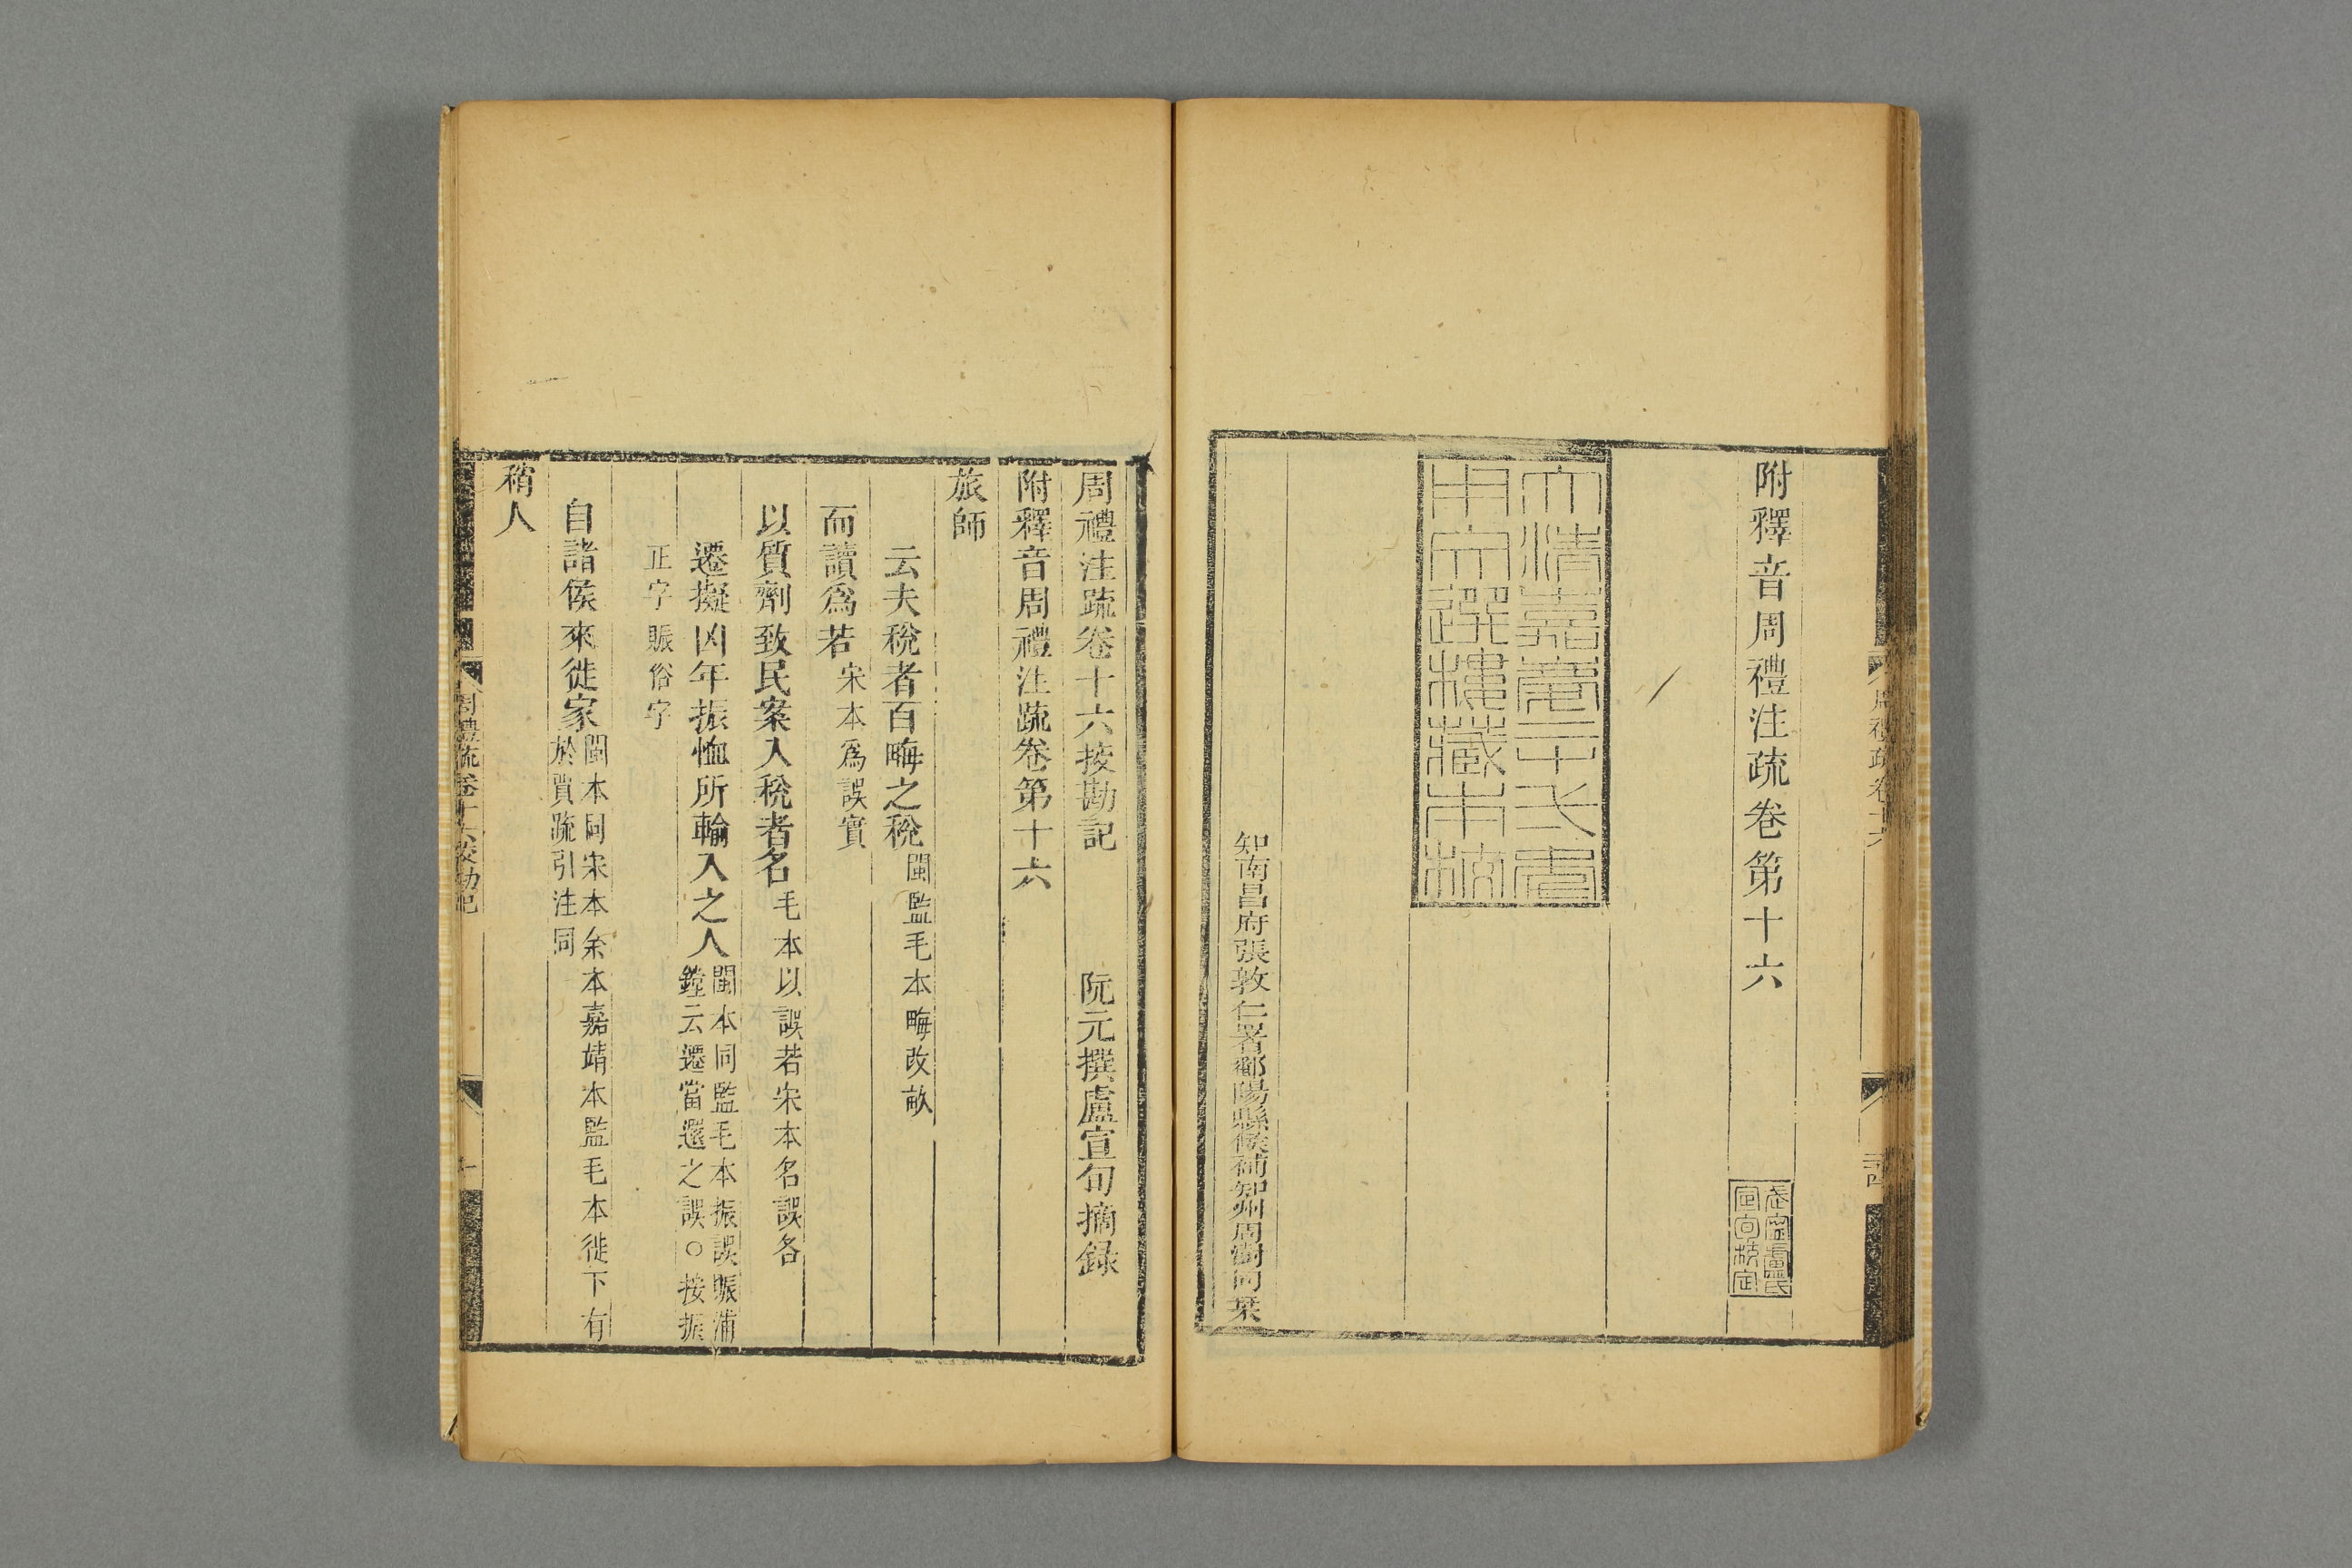 附釋音周禮注疏卷第十六
大清嘉慶二十年
用文選樓藏本校
知南昌府張敦仁署鄱陽縣候補知州周澍同栞
周禮注疏卷十六挍勘記
阮元撰盧宣旬摘録
附釋音周禮注疏卷第十六
旅師
云夫稅者百畮之稅
閩監毛本畮改畝
而讀爲若
宋本爲誤實
以質劑致民案入稅者名
毛本以誤若宋本名誤各
遷擬凶年振恤所輸入之人
閩本同監毛本振誤賑浦
鏜云遷當還之誤○按振
正字賑俗字
自諸侯來徙家
閩本同宋本余本嘉靖本監毛本徙下有
於賈疏引注同
稍人